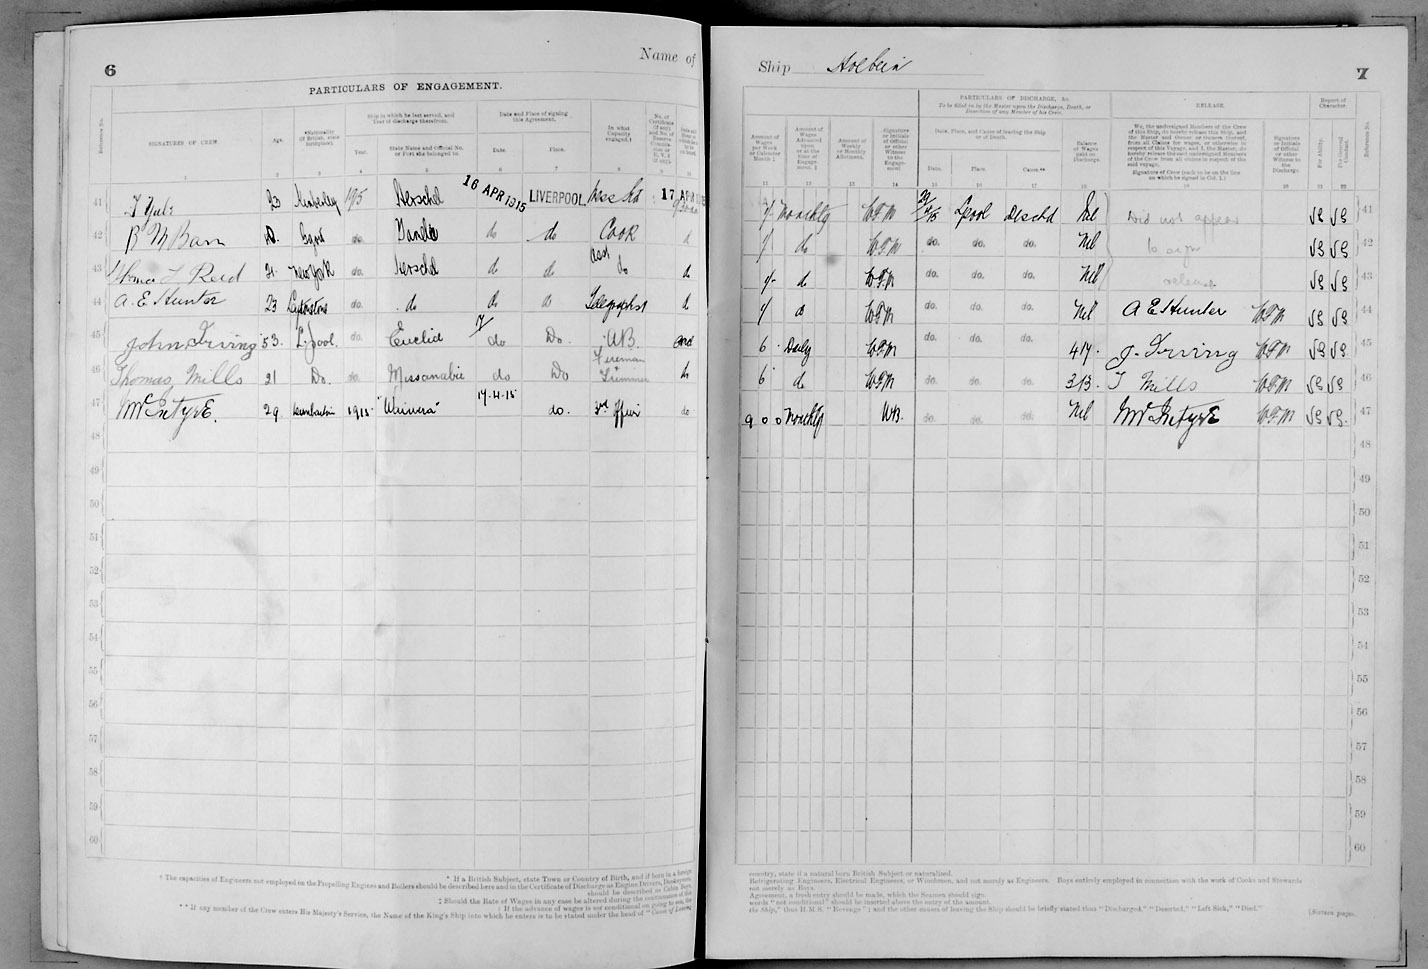 6
Name of
PARTICULARS OF ENGAGEMENT.
Reference No.
SIGNATURES OF CREW.
Age.
*Nationality (if British, state birthplace).
Ship in which he last served, and Year of discharge therefrom.
Year.
State Name and Official No. or Port she belonged to.
Date and Place of signing this Agreement.
Date.
Place.
In what Capacity engaged.†
1 2 3 4 5 6 7 8 9 10
41 23 Kimberley 1915 Herschel 16 APR 1915 LIVERPOOL. 17 APR
42 do. do do Cook
43 Thomas Reid 21 New York do. Herschel do do Asst do
44 A. E. Hunter 23 Leytonstone do. do do do Telegraphist
45 John Irving 53. L.pool. do. Euclid 17/ do Do. AB. and
46 Thomas Mills 21 Do. do. Missanabie do Do Fireman & Trimmer
47 McIntyre. 29 1915 17.4.15 do. 3rd Officer do
48
49
50
51
52
53
54
55
56
57
58
59
60
† The capacities of Engineers not employed on the Propelling Engines and Boilers should be described here and in the Certificate of Discharge as Engine Drivers, Donkeymen,
* If a British Subject, state Town or Country of Birth, and if born in a foreign
should be described as Cabin Boys,
‡ Should the Rate of Wages in any case be altered during the continuance of the
** If any member of the Crew enters His Majesty's Service, the Name of the King's Ship into which he enters is to be stated under the head of "Cause of Leaving
Ship Holbein
7
PARTICULARS OF DISCHARGE, &c.
To be filled in by the Master upon the Discharge, Death, or Desertion of any Member of his Crew.
RELEASE.
Report of Character.
Amount of Wages per Week or Calendar Month‡
Amount of Wages Advanced upon or at the time of Engagement.‡
Amount of Weekly or Monthly Allotment.
Signature or Initials of Official or other Witness to the Engagement
Date, Place, and Cause of leaving the Ship or of Death.
Date.
Place.
Cause.**
Balance of Wages paid on Discharge.
We, the undersigned Members of the Crew of this Ship, do hereby release this Ship, and the Master and Owner or Owners thereof, from all Claims for wages, or otherwise in respect of this Voyage, and I, the Master, do hereby release the undersigned Members of the Crew from all claims in respect of the said voyage.
Signatures of Crew (each to be on the line on which he signed in Col. 1.)
Signature or Initials of Official or other Witness to the Discharge.
For Ability.
For General Conduct.
Reference No.
11 12 13 14 15 16 17 18 19 20 21 22
Monthly W.F.M Lpool Dischd Nil Did not appear VG VG 41
do W.F.M do. do. do. Nil to sign VG VG 42
do W.F.M do. do. do. Nil release VG VG 43
do W.F.M do. do. do. Nil A E Hunter W.F.M VG VG 44
6 Daily W.F.M do. do. do. J. Irving W.F.M VG VG 45
6 do W.F.M do. do. do. T Mills W.F.M VG VG 46
9 0 0 Monthly WB. do. do. do. Nil McIntyre W.F.M VG VG. 47
48
49
50
51
52
53
54
55
56
57
58
59
60
country, state if a natural born British Subject or naturalized.
Refrigerating Engineers, Electrical Engineers, or Winchmen, and not merely as Engineers. Boys entirely employed in connection with the work of Cooks and Stewards
not merely as Boys.
Agreement, a fresh entry should be made, which the Seaman should sign.
words "not conditional" should be inserted above the entry of the amount.
the Ship," thus H.M.S. "Revenge"; and the other causes of leaving the Ship should be briefly stated thus "Discharged," "Deserted," "Left Sick," "Died."
(Sixteen pages.